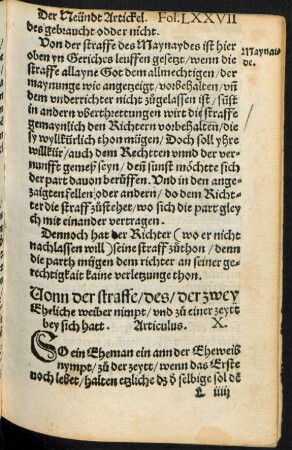 Der Neündt Artickel. Fol. LXXVII
des gebraucht odder nicht.
Von der straffe des Maynaydes ist hier
oben yn Gerichs leuffen gesetzt / wenn die
straffe allayne Got dem allmechtigen / der
maynunge wie angezeigt / vorbehalten / vñ
dem vnderrichter nicht zůgelassen ist / sũst
in andern vberthrettungen wirt die straffe
gemaynlich den Richtern vorbehalten / die
sy wyllkürlich thon mügen / Doch soll yhre
willkür / auch dem Rechtten vnnd der ver-
nunfft gemeß seyn / deñ sunst möchtte sich
der part dauon berüffen. Vnd in den ange-
zaigten fellen oder andern / do dem Rich-
ter die straff zůstehet / wo sich die part gley
ch mit einander vertragen.
Dennoch hat der Richter ( wo er nicht
nachlassen will ) seine straff zůthon / denn
die parth mügen dem richter an seiner ge-
rechtigkait kaine verletzunge thon.
Maynai-
de.
Vonn der straffe / des / der zwey
Eheliche weiber nimpt / vnd zů einer zeytt
bey sich hatt. Articulus. X.
SO ein Eheman ein ann der Eheweib
nympt / zů der zeytt / wenn das Erste
noch lebet / halten etzliche dz ð selbige sol dẽ
L iiij